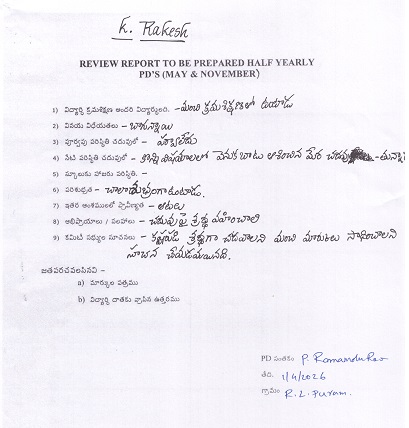 K. Rakesh
REVIEW REPORT TO BE PREPARED HALF YEARLY
PD'S (MAY & NOVEMBER)
1) విద్యార్థి క్రమశిక్షణ అందరి విద్యార్థులది. - మంచి క్రమశిక్షణలో ఉన్నాడు
2) వినయ విధేయతలు - బాగున్నాయి
3) పూర్వపు పరిస్థితి చదువులో - ఫర్వాలేదు
4) నేటి పరిస్థితి చదువులో - కొన్ని విషయాలలో వెనుకబాటు
5) స్కూలుకు హాజరు పరిస్థితి. -
6) పరిశుభ్రత - చాలా శుభ్రంగా ఉంటాడు.
7) ఇతర అంశములలో ప్రావీణ్యత - ఆటలు
8) అభిప్రాయాలు / సలహాలు - చదువుపై శ్రద్ధ వహించాలి
9) కమిటి సభ్యుల సూచనలు - కష్టపడి శ్రద్ధగా చదవాలని మంచి మార్కులు సాధించాలని
సూచన చేయడమయినది.
జతపరచవలసినవి -
a) మార్కుల పత్రము
b) విద్యార్థి దాతకు వ్రాసిన ఉత్తరము
PD సంతకం P. Ramandu Rao
తేది. 1/4/2026
గ్రామం R. L. Puram.